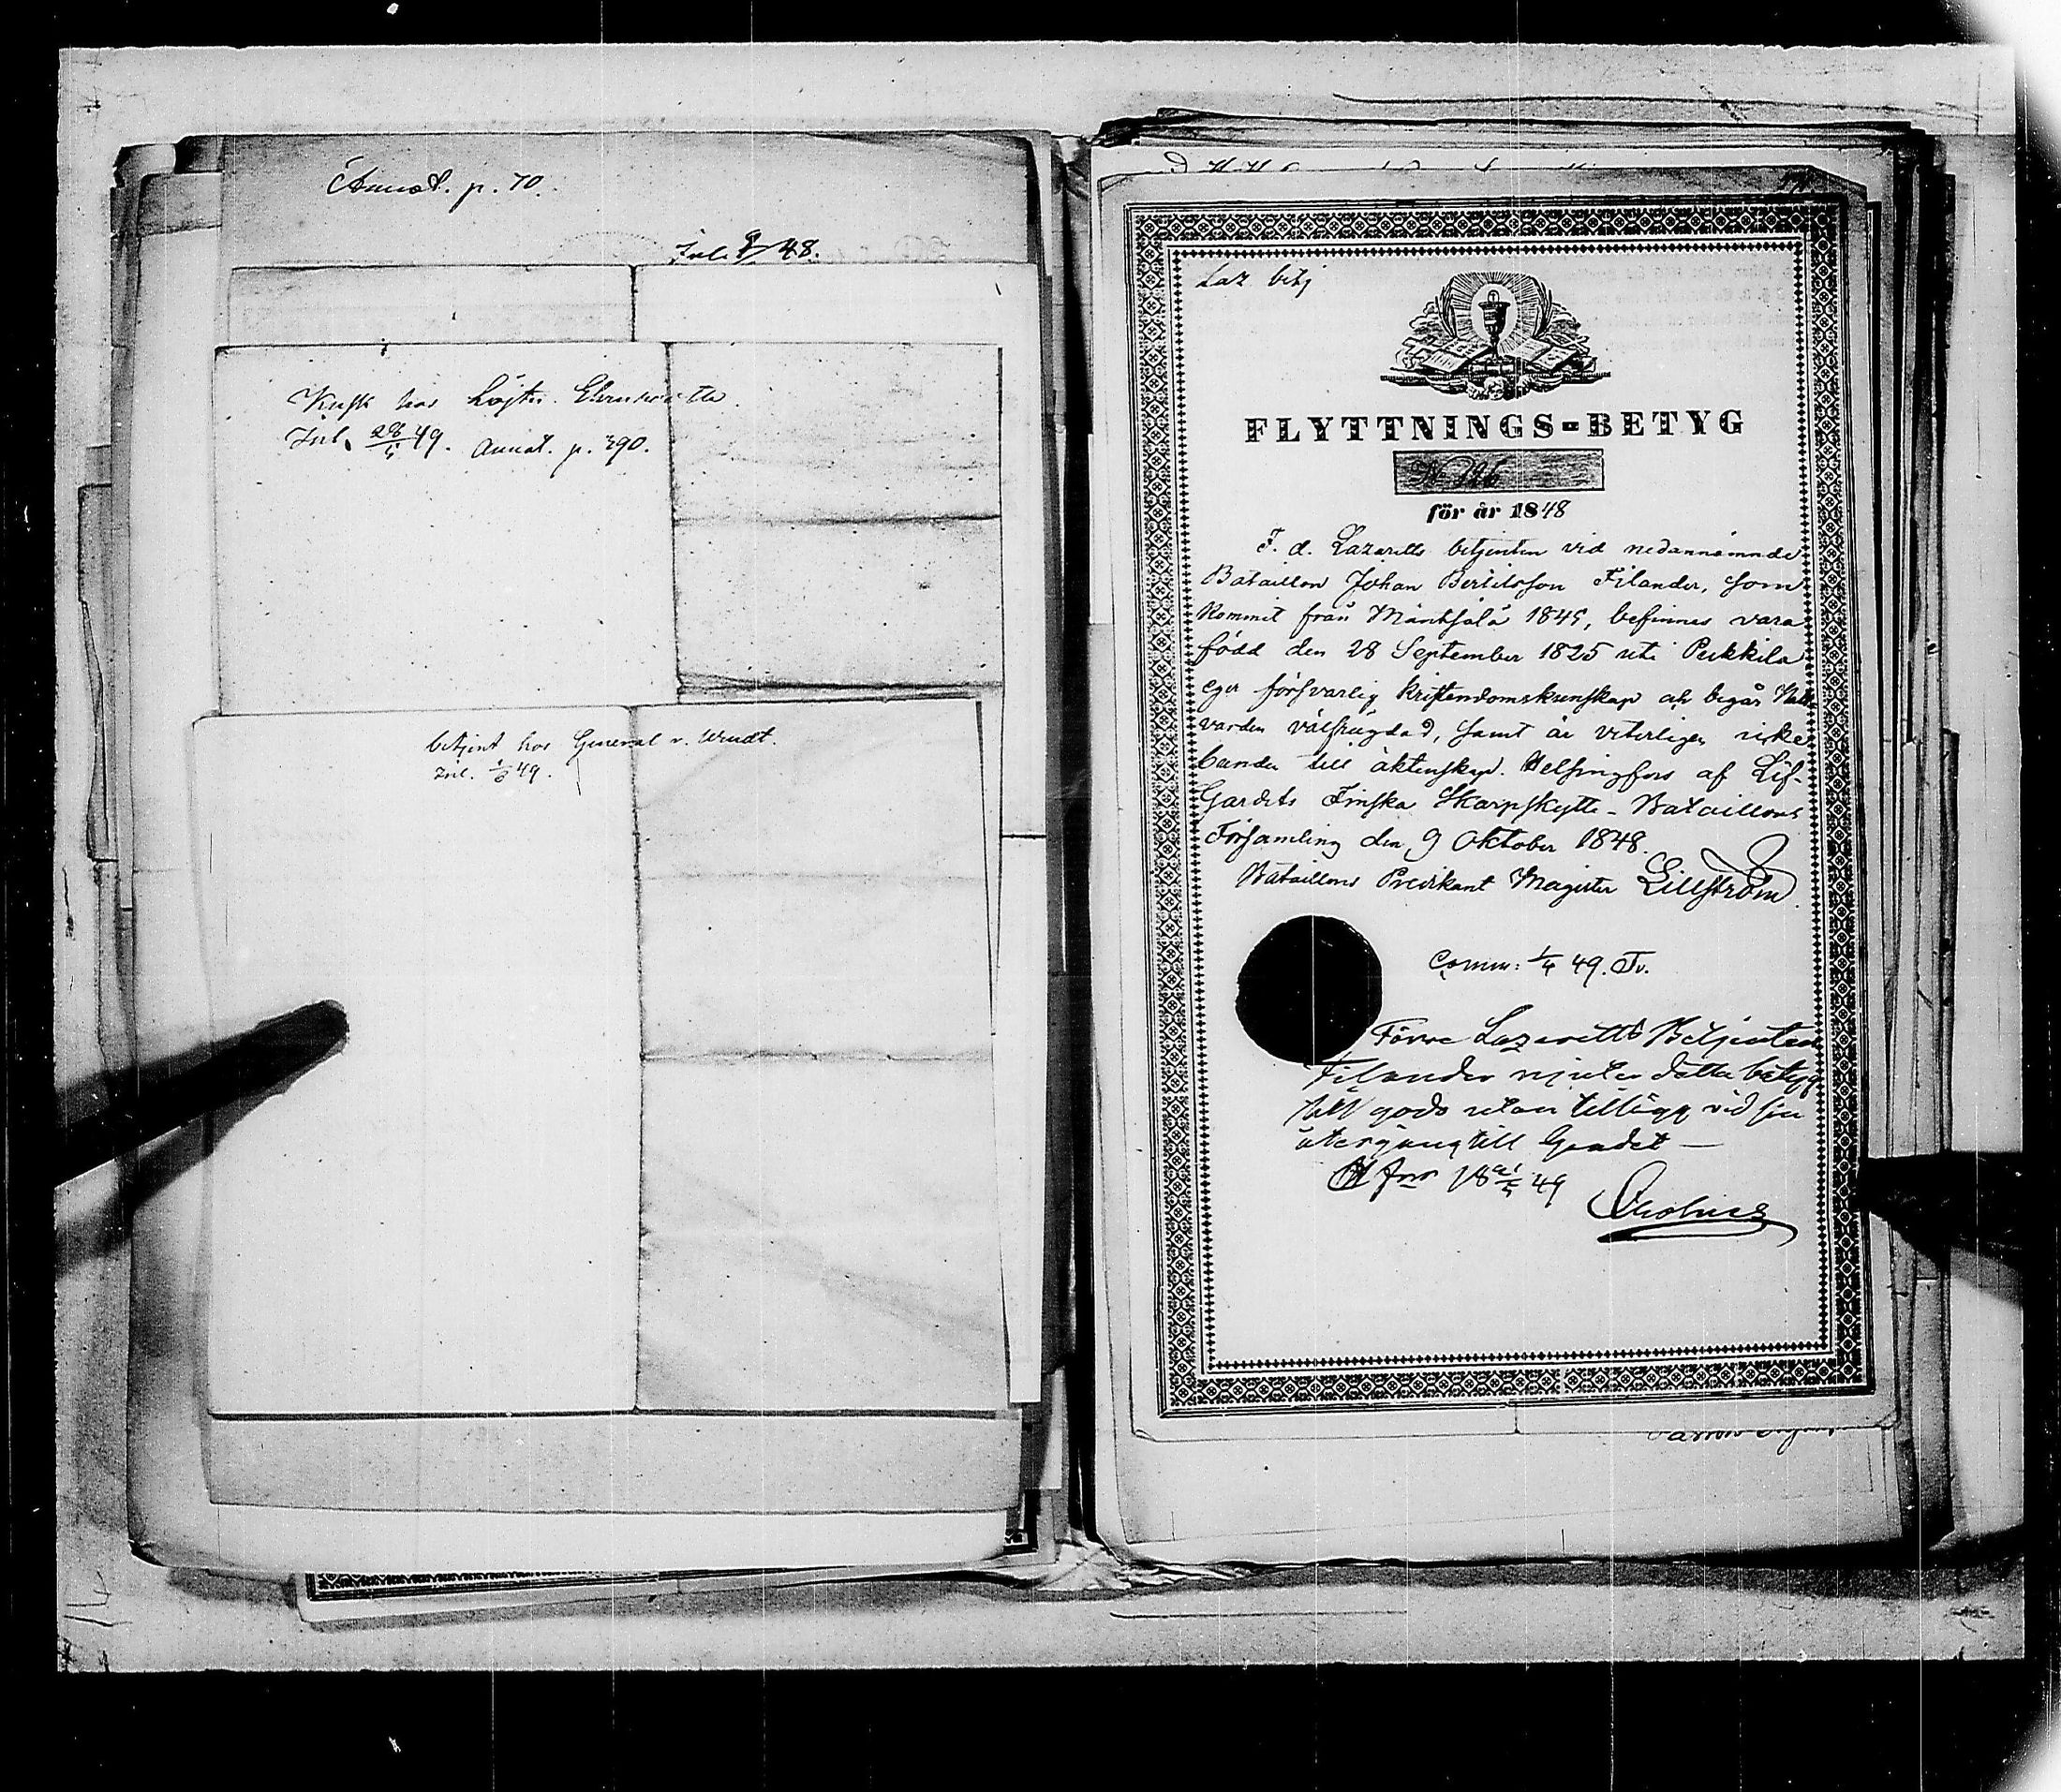 Annot. p. 70.
Inl. 9/ 48.
Kusk hos Löjtn. Ehrnrooth
Inl. 28/4 49. Annot. p. 390.
betjent hos General v. Wendt.
Inl. 1/6 49.
Laz betj
FLYTTNINGS=BETYG
No
för år 1848
F. d. Lazaretts betjenten vid nedannämnde
Bataillon Johan Bertilsson Filander, som
kommit från Mäntsälä 1845, befinnes vara
född den 28 September 1825 uti Pukkila
eger försvarlig kristendomskunskap och begår Natt-
varden välfrägdad, samt är veterligen icke
bunden till äktenskap. Helsingfors af Lif-
Gardets Finska Skarpskytte-Bataillons
Församling den 9 Oktober 1848.
Bataillons Predikant Magister Lillström
Comm: 1/4 49. Tv.
Förre Lazaretts Betjenten
Filander njuter detta betyg
till godo utan tillägg vid sin
återgång till Gardet —
H fors 18 /5 49